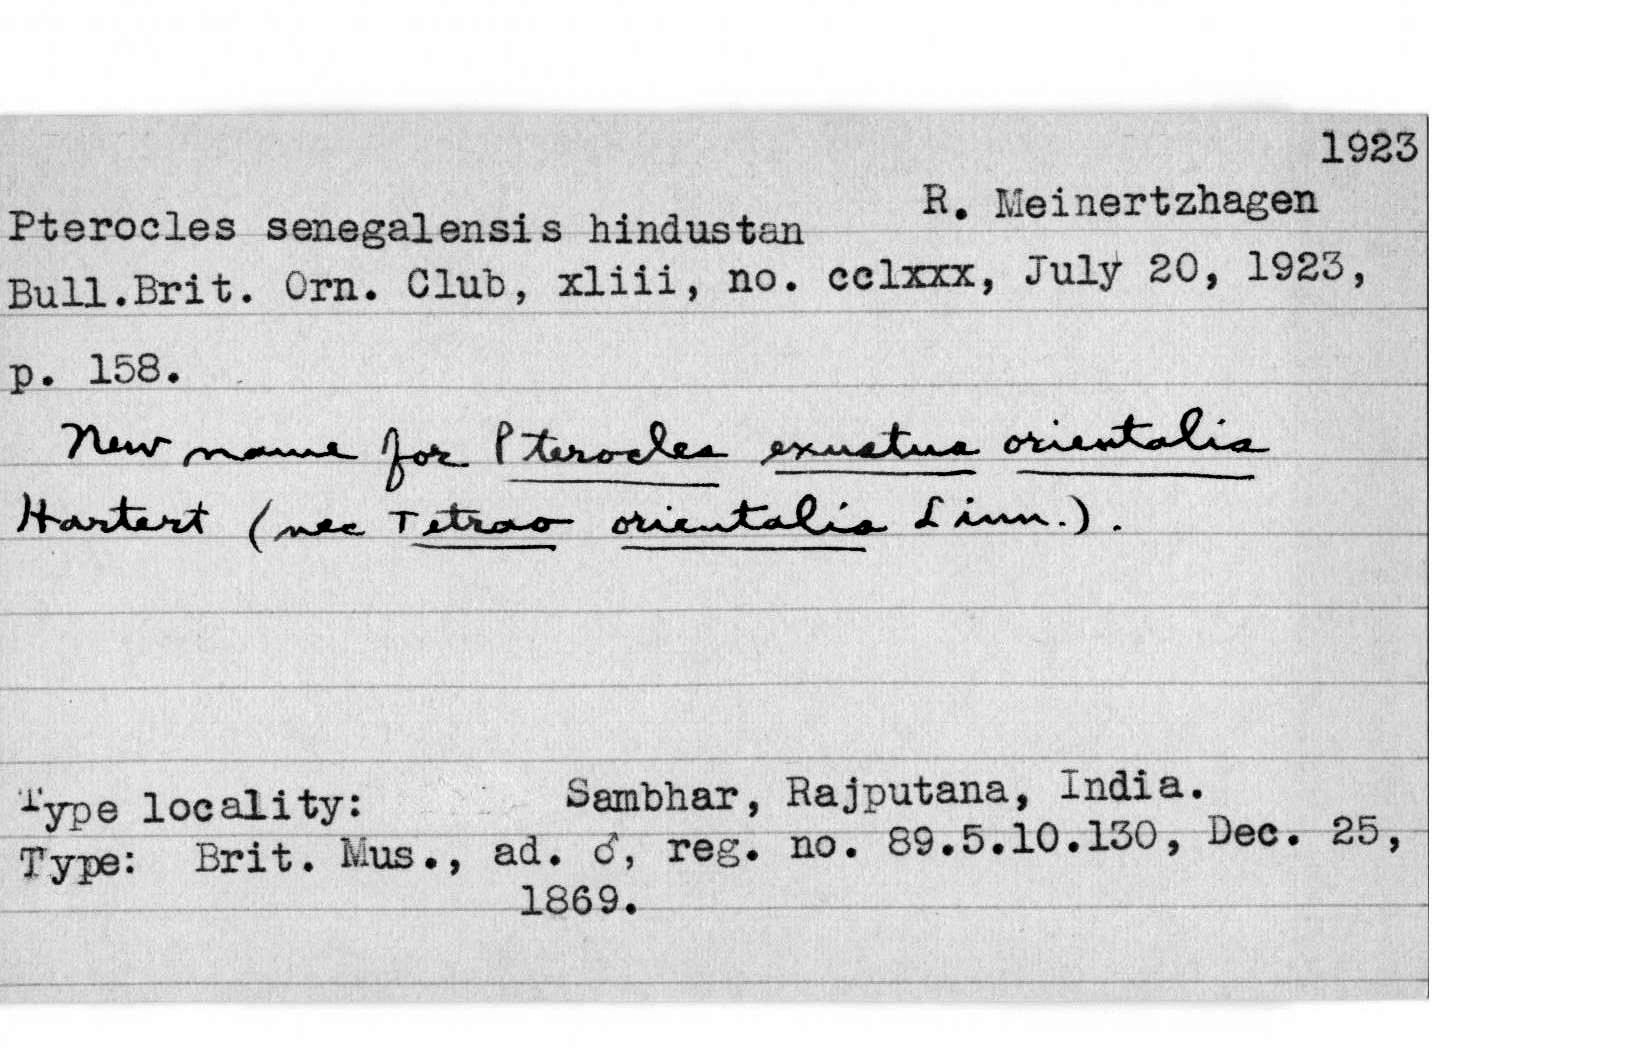 1923
R. Meinertzhagen
Pterocles senegalensis hindustan
Bull.Brit. Orn. Club, xliii, no. cclxxx, July 20, 1923,
p. 158.
New name for Pterocles exustus orientalis
Hartert (nec Tetrao orientalis Linn.).
Type locality: Sambhar, Rajputana, India.
Type: Brit. Mus., ad. ♂, reg. no. 89.5.10.130, Dec. 25,
1869.